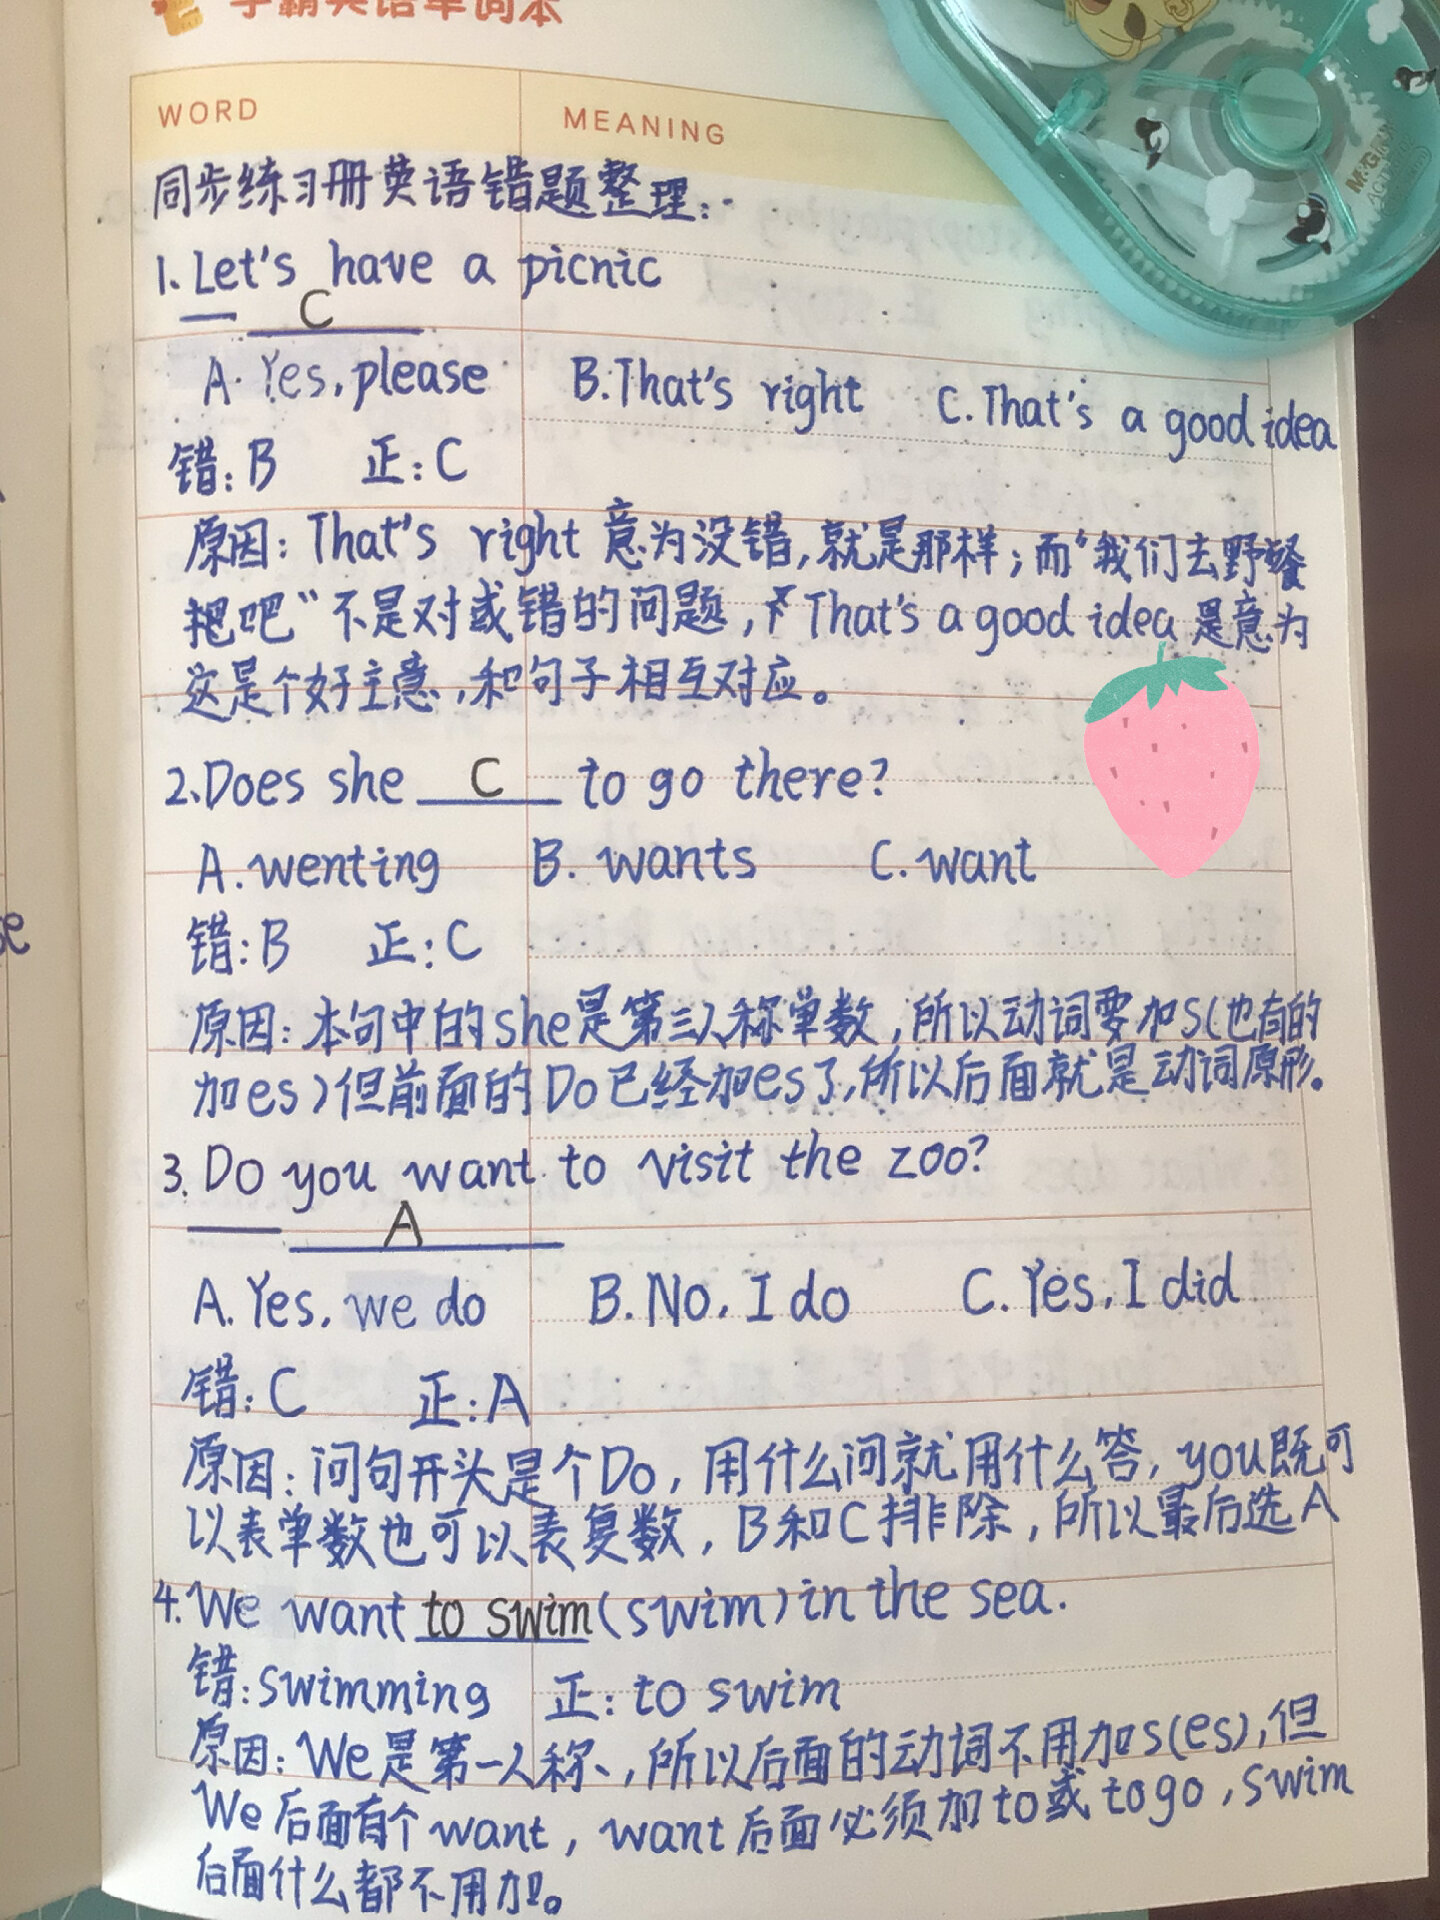 学霸英语单词本
WORD MEANING
M&G
同步练习册英语错题整理:
1. Let's have a picnic
C
A. Yes, please B. That's right C. That's a good idea
错: B 正: C
原因: That's right 意为没错,就是那样;而“我们去野餐
吧”不是对或错的问题, That's a good idea 是意为
这是个好主意,和句子相互对应。
2. Does she C to go there?
A. wenting B. wants C. want
错: B 正: C
原因: 本句中的she是第三人称单数,所以动词要加s(也有的
加es)但前面的Do已经加es了,所以后面就是动词原形。
3. Do you want to visit the zoo?
A
A. Yes, we do B. No, I do C. Yes, I did
错: C 正: A
原因: 问句开头是个Do,用什么问就用什么答, you既可
以表单数也可以表复数, B和C排除,所以最后选A
4. We want to swim (swim) in the sea.
错: swimming 正: to swim
原因: We是第一人称、,所以后面的动词不用加s(es),但
We后面有个want, want后面必须加to或to go, swim
后面什么都不用加。